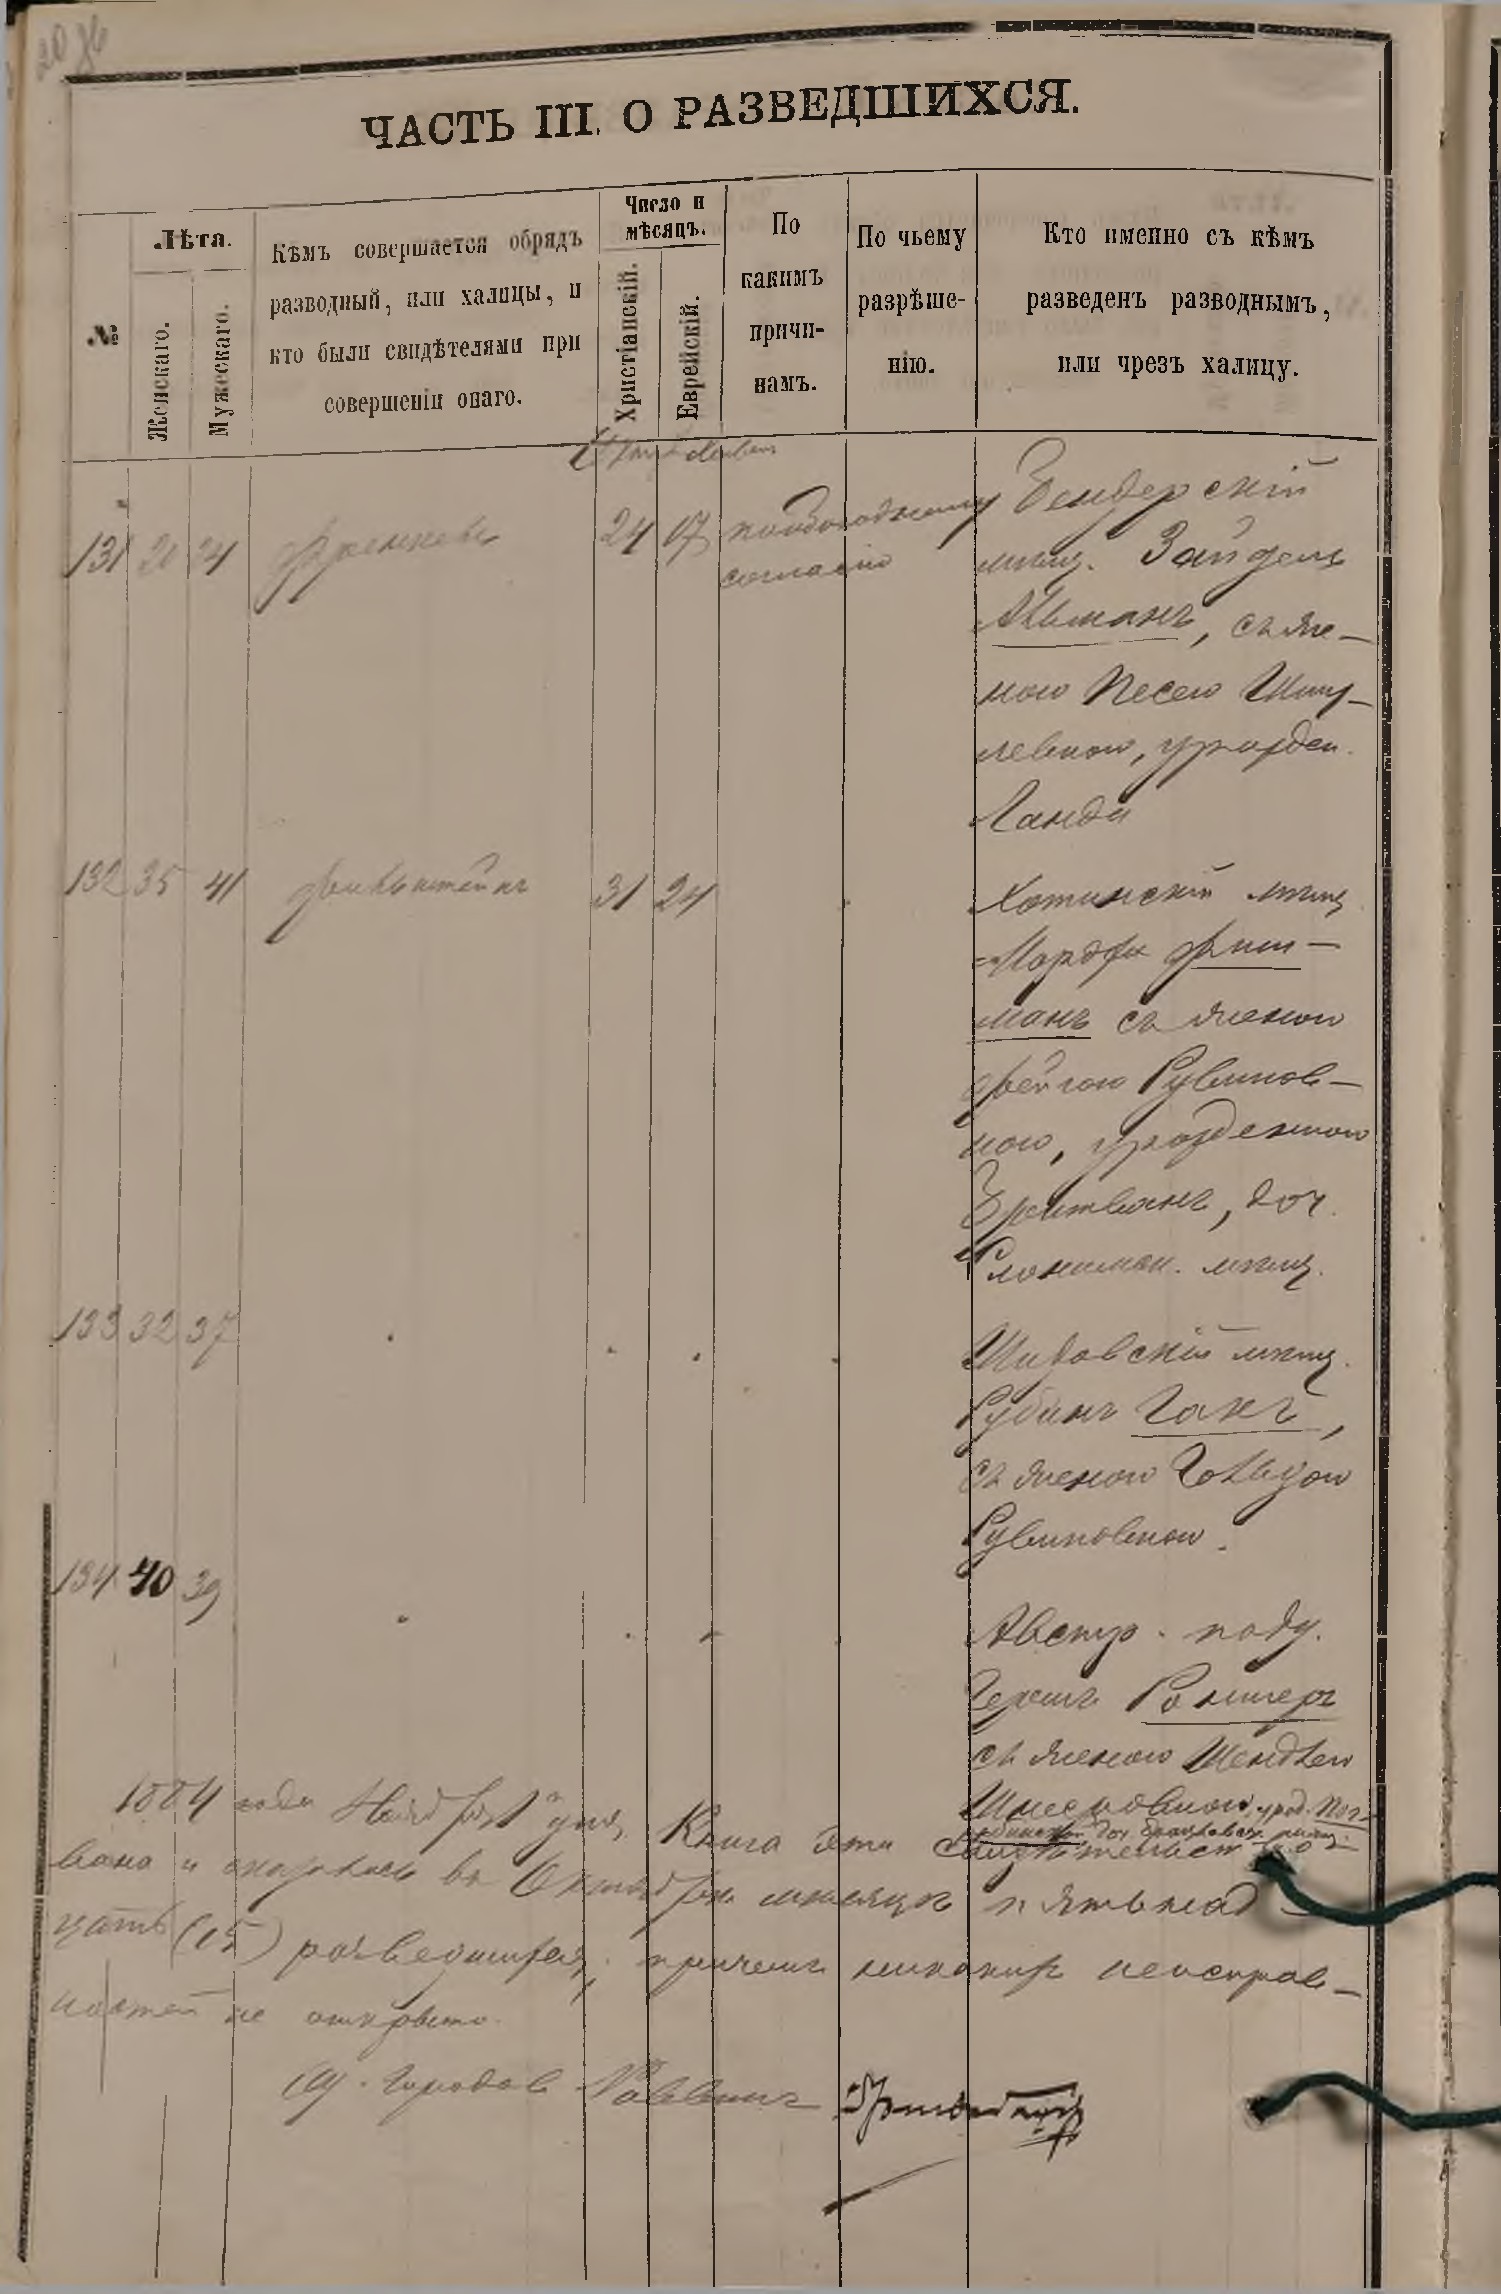 ЧАСТЬ III. О РАЗВЕДШИХСЯ.
№
Лѣта.
Женскаго.
Мужескаго.
Кѣмъ совершается обрядъ
разводный, или халицы, и
кто были свидѣтелями при
совершеніи онаго.
Число и
мѣсяцъ.
Христіанскій.
Еврейскій.
По
какимъ
причи-
намъ.
По чьему
разрѣше-
нію.
Кто именно съ кѣмъ
разведенъ разводнымъ,
или чрезъ халицу.
131 20 24 Френкель 24 17 по обоюдному
согласію
Бендерскій
мѣщ. Зайдель
Альманъ, съ же-
ною Песею Шму-
левною, урожден.
Ланда
132 35 41 Финкельштейнъ 31 24
Хотинскій мѣщ.
Мордко Фиш-
манъ съ женою
Фейгою Рувинов-
ною, урожденною
Зрейтманъ, доч.
Слонимск. мѣщ.
133 32 37
мѣщ.
Рубинъ Ганъ,
съ женою Голдою
Рувиновною.
134 40 39
Австр. подд.
Гершъ
съ женою Шендлею
урод.
1884 года Ноября 1 дня Книга эта свидѣтельст-
вана и оказалось въ Октябрѣ мѣсяцѣ пятьнад-
цать (15) разведшихся, причемъ никакихъ неисправ-
ностей не открыто.
Городов Раввинъ